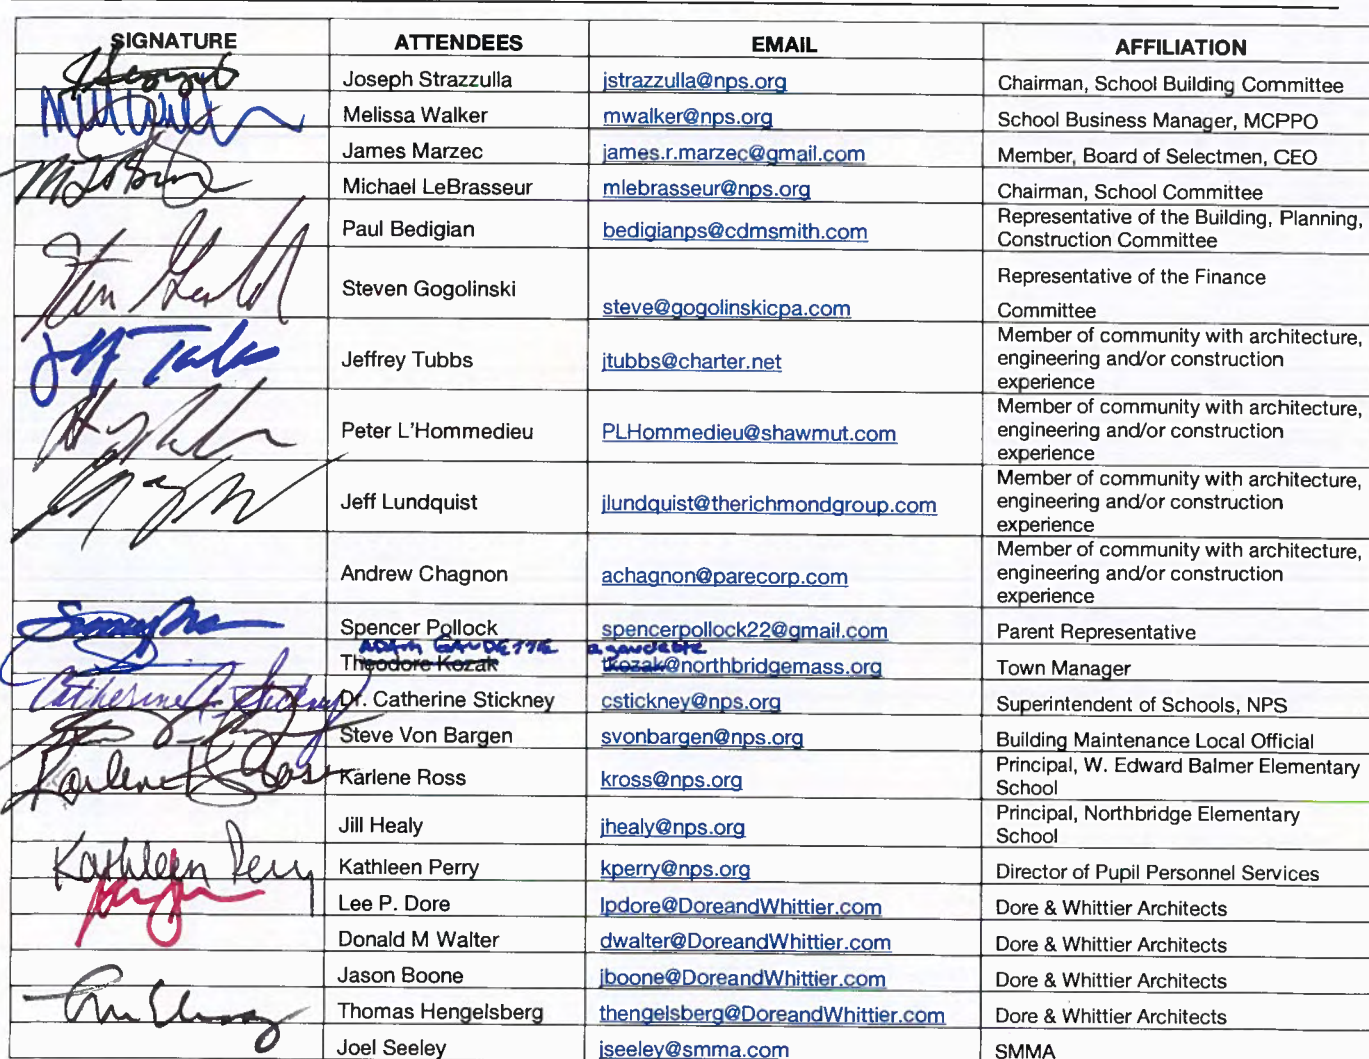 SIGNATURE ATTENDEES EMAIL AFFILIATION
Joseph Strazzulla jstrazzulla@nps.org Chairman, School Building Committee
Melissa Walker mwalker@nps.org School Business Manager, MCPPO
James Marzec james.r.marzec@gmail.com Member, Board of Selectmen, CEO
Michael LeBrasseur mlebrasseur@nps.org Chairman, School Committee
Paul Bedigian bedigianps@cdmsmith.com Representative of the Building, Planning,
Construction Committee
Steven Gogolinski steve@gogolinskicpa.com Representative of the Finance
Committee
Jeff Tubbs Jeffrey Tubbs jtubbs@charter.net Member of community with architecture,
engineering and/or construction
experience
Peter L'Hommedieu PLHommedieu@shawmut.com Member of community with architecture,
engineering and/or construction
experience
Jeff Lundquist jlundquist@therichmondgroup.com Member of community with architecture,
engineering and/or construction
experience
Andrew Chagnon achagnon@parecorp.com Member of community with architecture,
engineering and/or construction
experience
Spencer Pollock spencerpollock22@gmail.com Parent Representative
ADAM GAUDETTE agaudette
Theodore Kozak tkozak@northbridgemass.org Town Manager
Catherine A. Stickney Dr. Catherine Stickney cstickney@nps.org Superintendent of Schools, NPS
Steve Von Bargen svonbargen@nps.org Building Maintenance Local Official
Karlene Ross Karlene Ross kross@nps.org Principal, W. Edward Balmer Elementary
School
Jill Healy jhealy@nps.org Principal, Northbridge Elementary
School
Kathleen Perry Kathleen Perry kperry@nps.org Director of Pupil Personnel Services
Lee P. Dore lpdore@DoreandWhittier.com Dore & Whittier Architects
Donald M Walter dwalter@DoreandWhittier.com Dore & Whittier Architects
Jason Boone jboone@DoreandWhittier.com Dore & Whittier Architects
Thomas Hengelsberg thengelsberg@DoreandWhittier.com Dore & Whittier Architects
Joel Seeley jseeley@smma.com SMMA